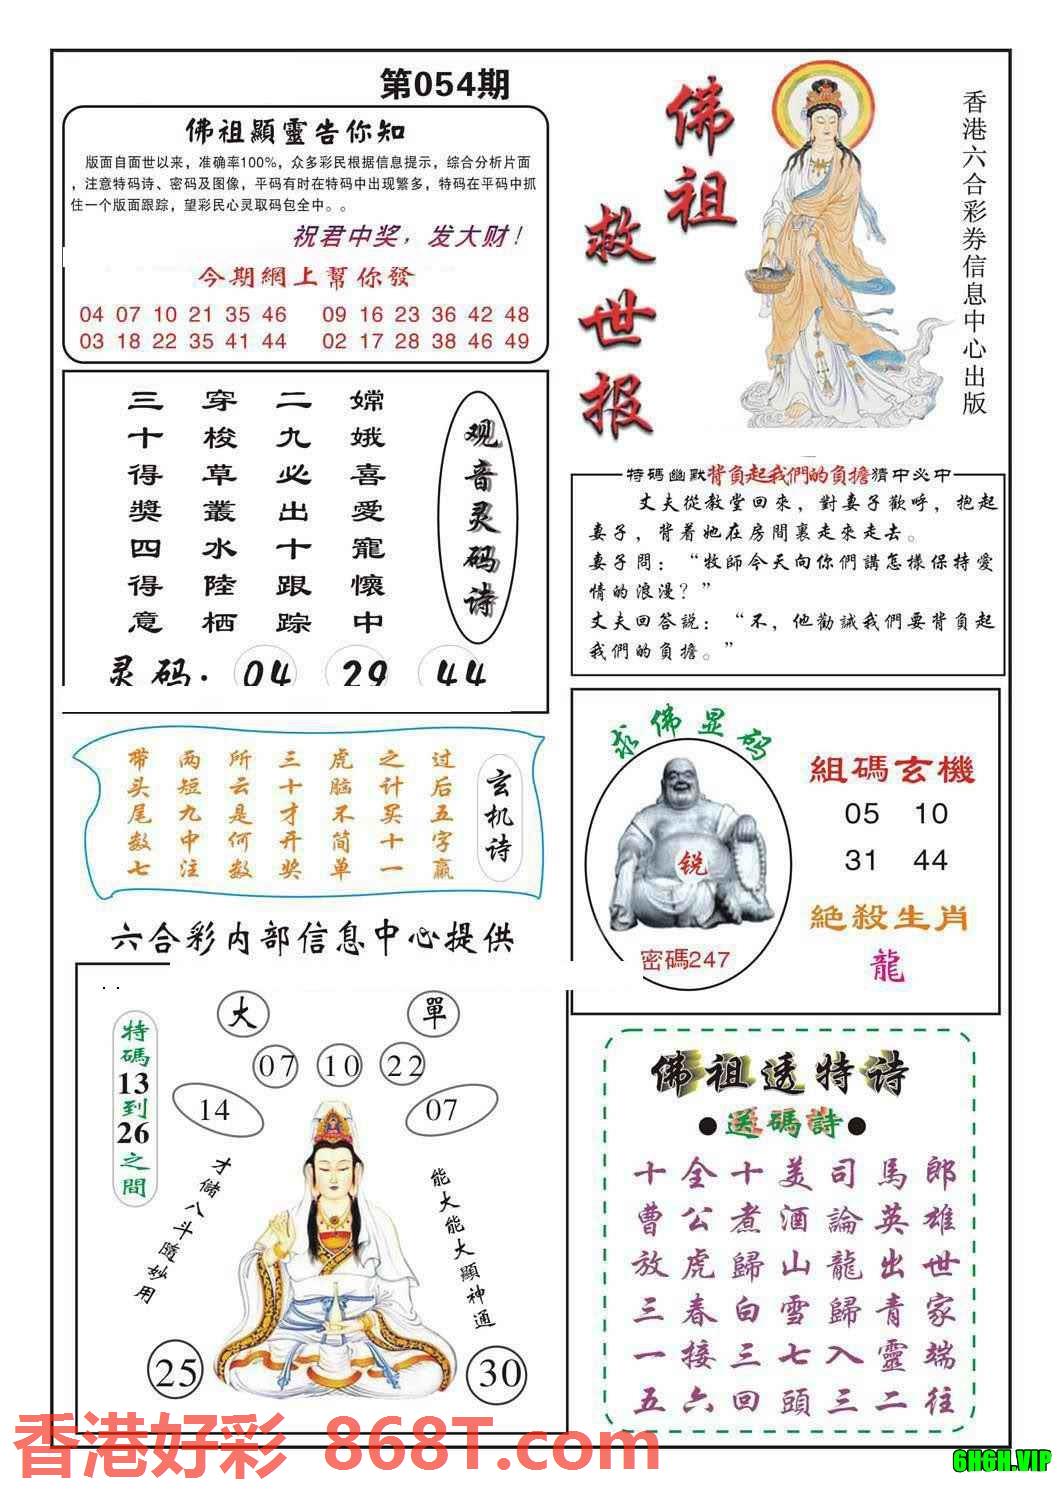 第054期
佛祖顯靈告你知
版面自面世以来，准确率100%，众多彩民根据信息提示，综合分析片面
，注意特码诗、密码及图像，平码有时在特码中出现繁多，特码在平码中抓
住一个版面跟踪，望彩民心灵取码包全中。。
祝君中奖，发大财！
今期網上幫你發
04 07 10 21 35 46 09 16 23 36 42 48
03 18 22 35 41 44 02 17 28 38 46 49
佛祖
救世报
香港六合彩券信息中心出版
观音灵码诗
嫦娥喜愛寵懷中
二九必出十跟踪
穿梭草叢水陸栖
三十得獎四得意
灵码：04 29 44
特碼幽默背負起我們的負擔猜中必中
丈夫從教堂回來，對妻子歡呼，抱起
妻子，背着她在房間裏走來走去。
妻子問：“牧師今天向你們講怎樣保持愛
情的浪漫？”
丈夫回答説：“不，他勸誡我們要背負起
我們的負擔。”
玄机诗
过后五字赢
之计买十一
虎脑不简单
三十才开奖
所云是何数
两短九中注
带头尾数七
求佛显码
锐
密碼247
組碼玄機
05 10
31 44
絕殺生肖
龍
六合彩内部信息中心提供
特碼13到26之間
大 單
07 10 22
14 07
才儲八斗隨妙用
能大能大顯神通
25 30
佛祖透特诗
●送碼詩●
十全十美司馬郎
曹公煮酒論英雄
放虎歸山龍出世
三春白雪歸青家
一接三七入靈端
五六回頭三二往
香港好彩 868T.com
6H6H.VIP